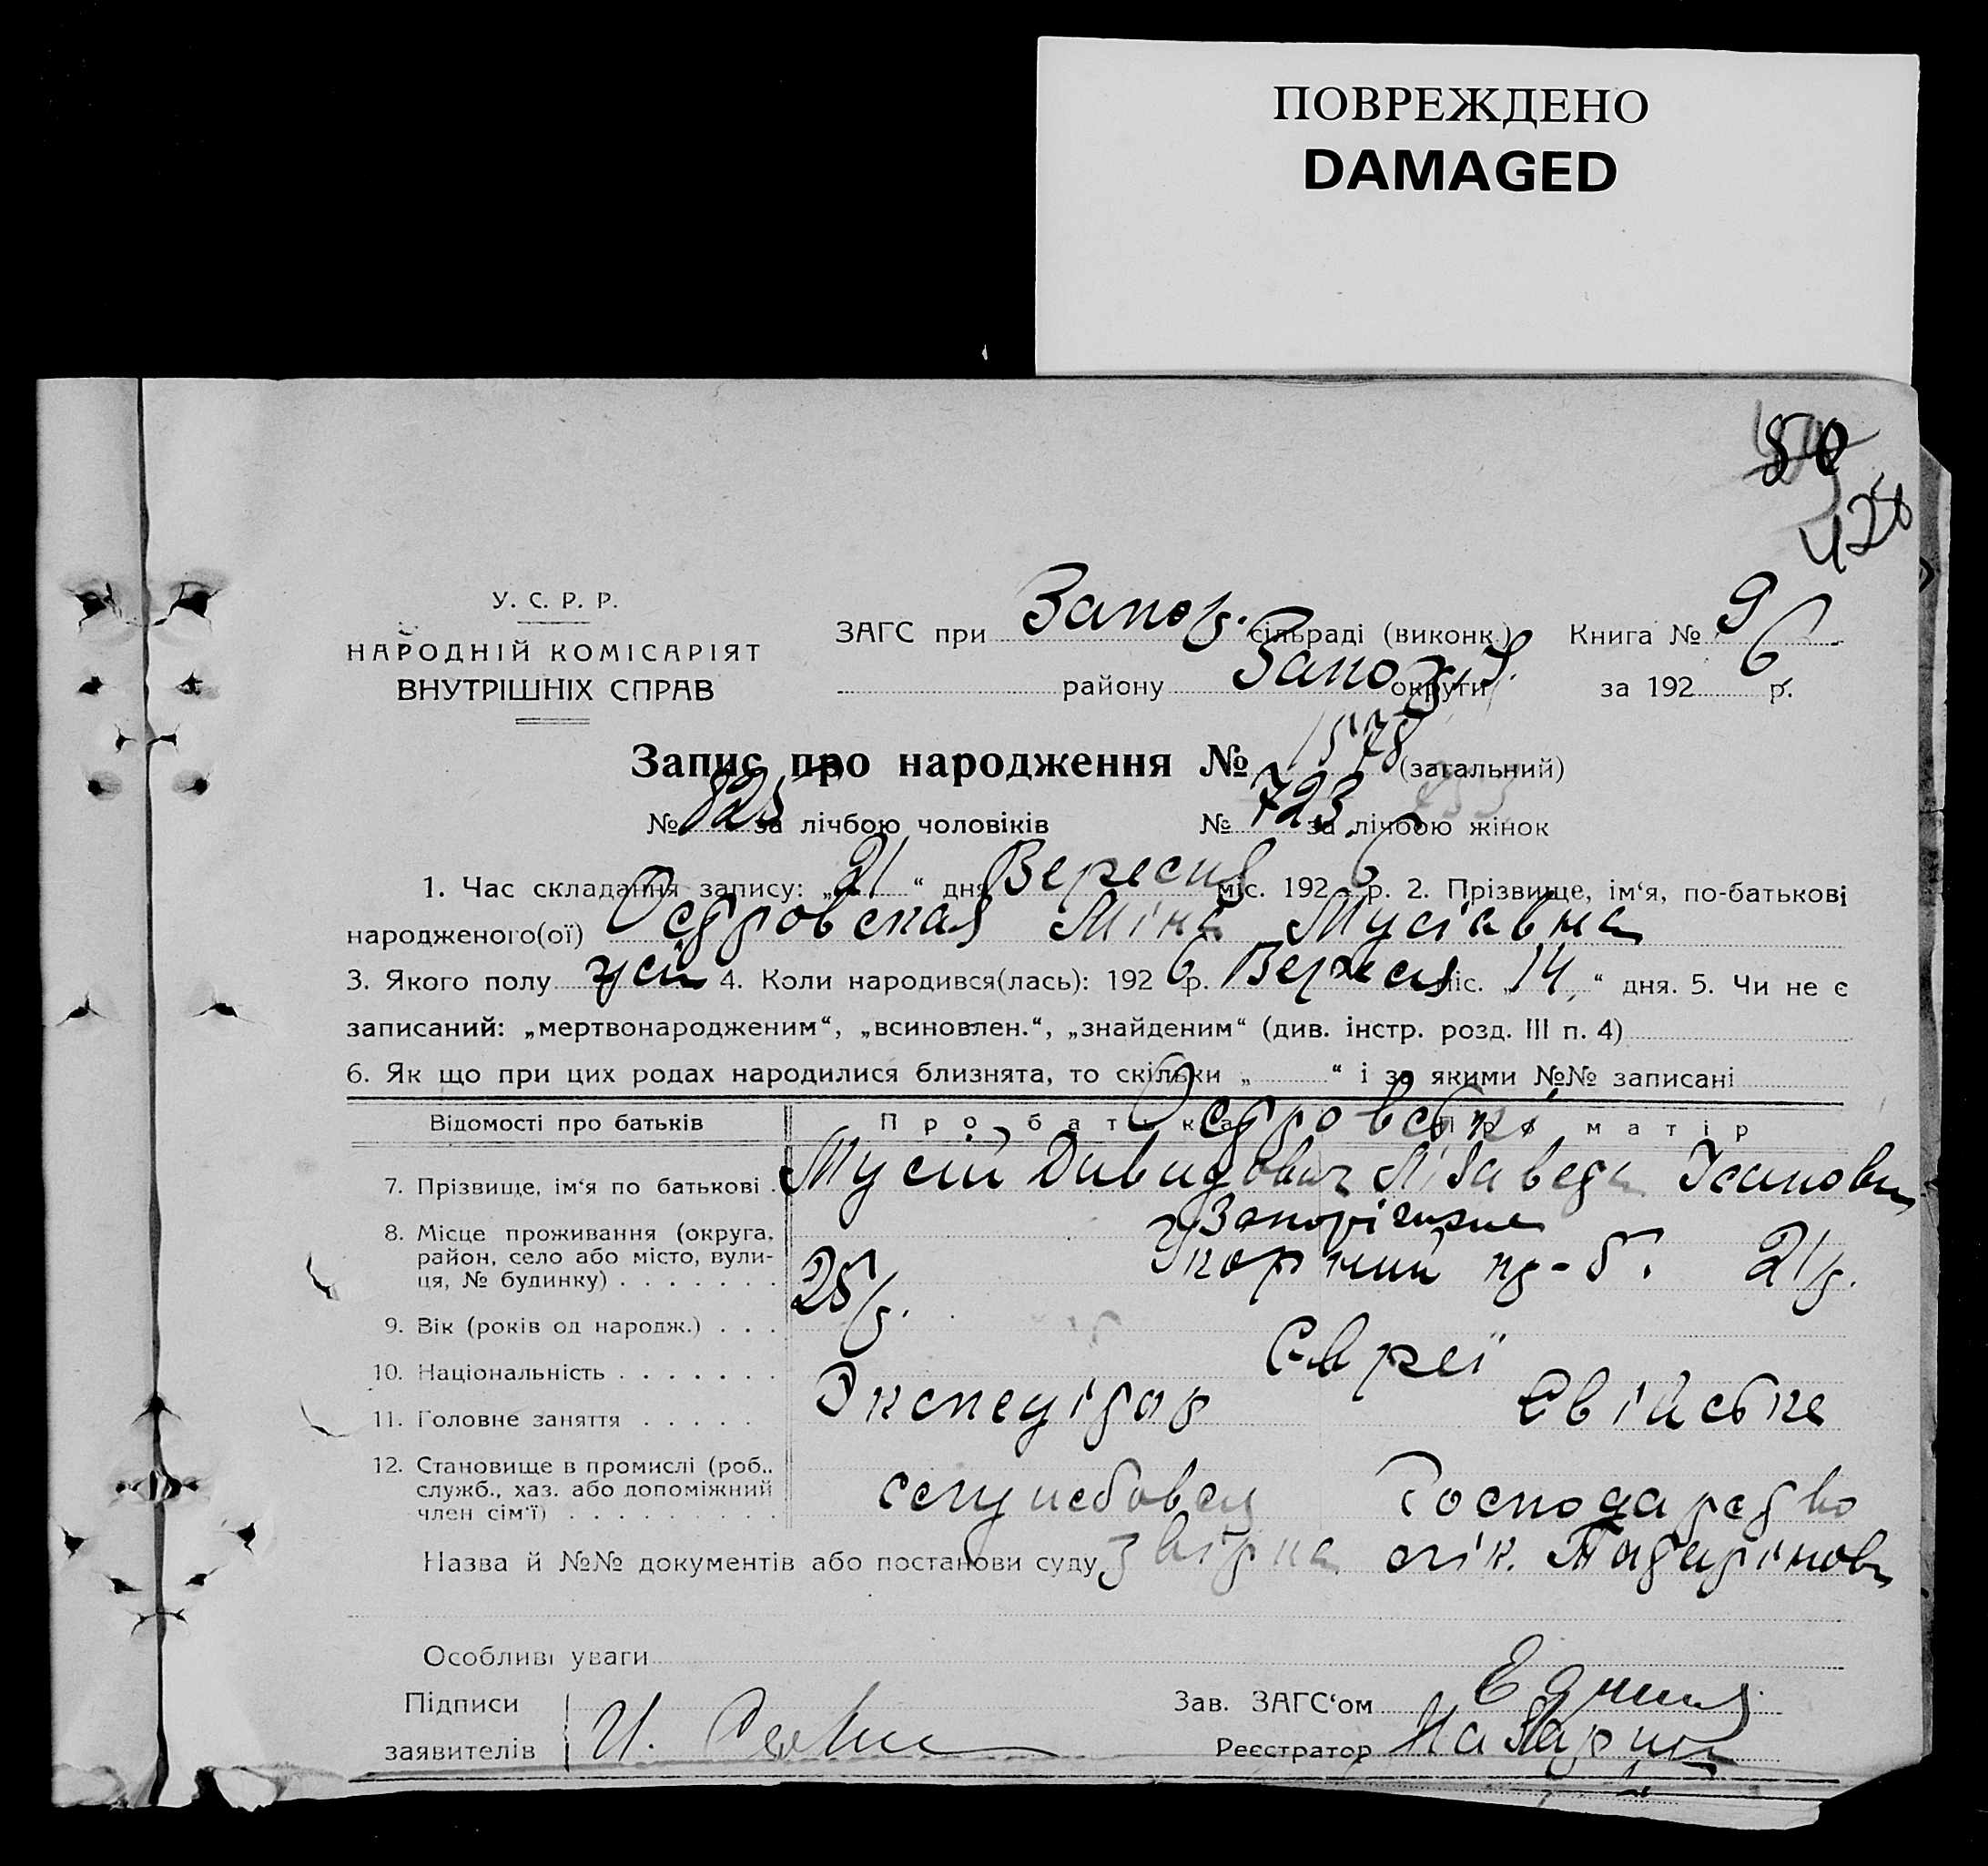 ПОВРЕЖДЕНО
DAMAGED
80
У. С. Р. Р.
НАРОДНІЙ КОМІСАРІЯТ
ВНУТРІШНІХ СПРАВ
ЗАГС при Запор. сільраді (виконк.) Книга № 9
району Запоріз. округи за 192 6 р.
Запис про народження № 1578 (загальний)
№ 825 за лічбою чоловіків № 723 за лічбою жінок
1. Час складання запису: „ 21 “ дня Вересня міс. 192 6 р. 2. Прізвище, ім‘я, по-батькові
народженого(ої) Островская Міна Мусіївна
3. Якого полу жін 4. Коли народився(лась): 192 6 р. Вересня міс. „ 14 “ дня. 5. Чи не є
записаний: „мертвонародженим“, „всиновлен.“, „знайденим“ (див. інстр. розд. III п. 4)
6. Як що при цих родах народилися близнята, то скільки „ “ і за якими №№ записані
Відомості про батьків Про батька Про матір
Островські
7. Прізвище, ім‘я по батькові . Мусій Давидович Лізавета Ісаковн
8. Місце проживання (округа, район, село або місто, вулиця, № будинку) . . . . . . . Запоріжжя
9. Вік (років од народж.) . . . 25 р. 21 р.
10. Національність . . . . . . . Євреї
11. Головне заняття . . . . . Экспедітор Свійське
12. Становище в промислі (роб., служб., хаз. або допоміжний член сім‘ї) . . . . . . . . . служ�бовец Господарство
Назва й №№ документів або постанови суду
Особливі уваги
Підписи
заявителів
Зав. ЗАГС‘ом
Реєстратор